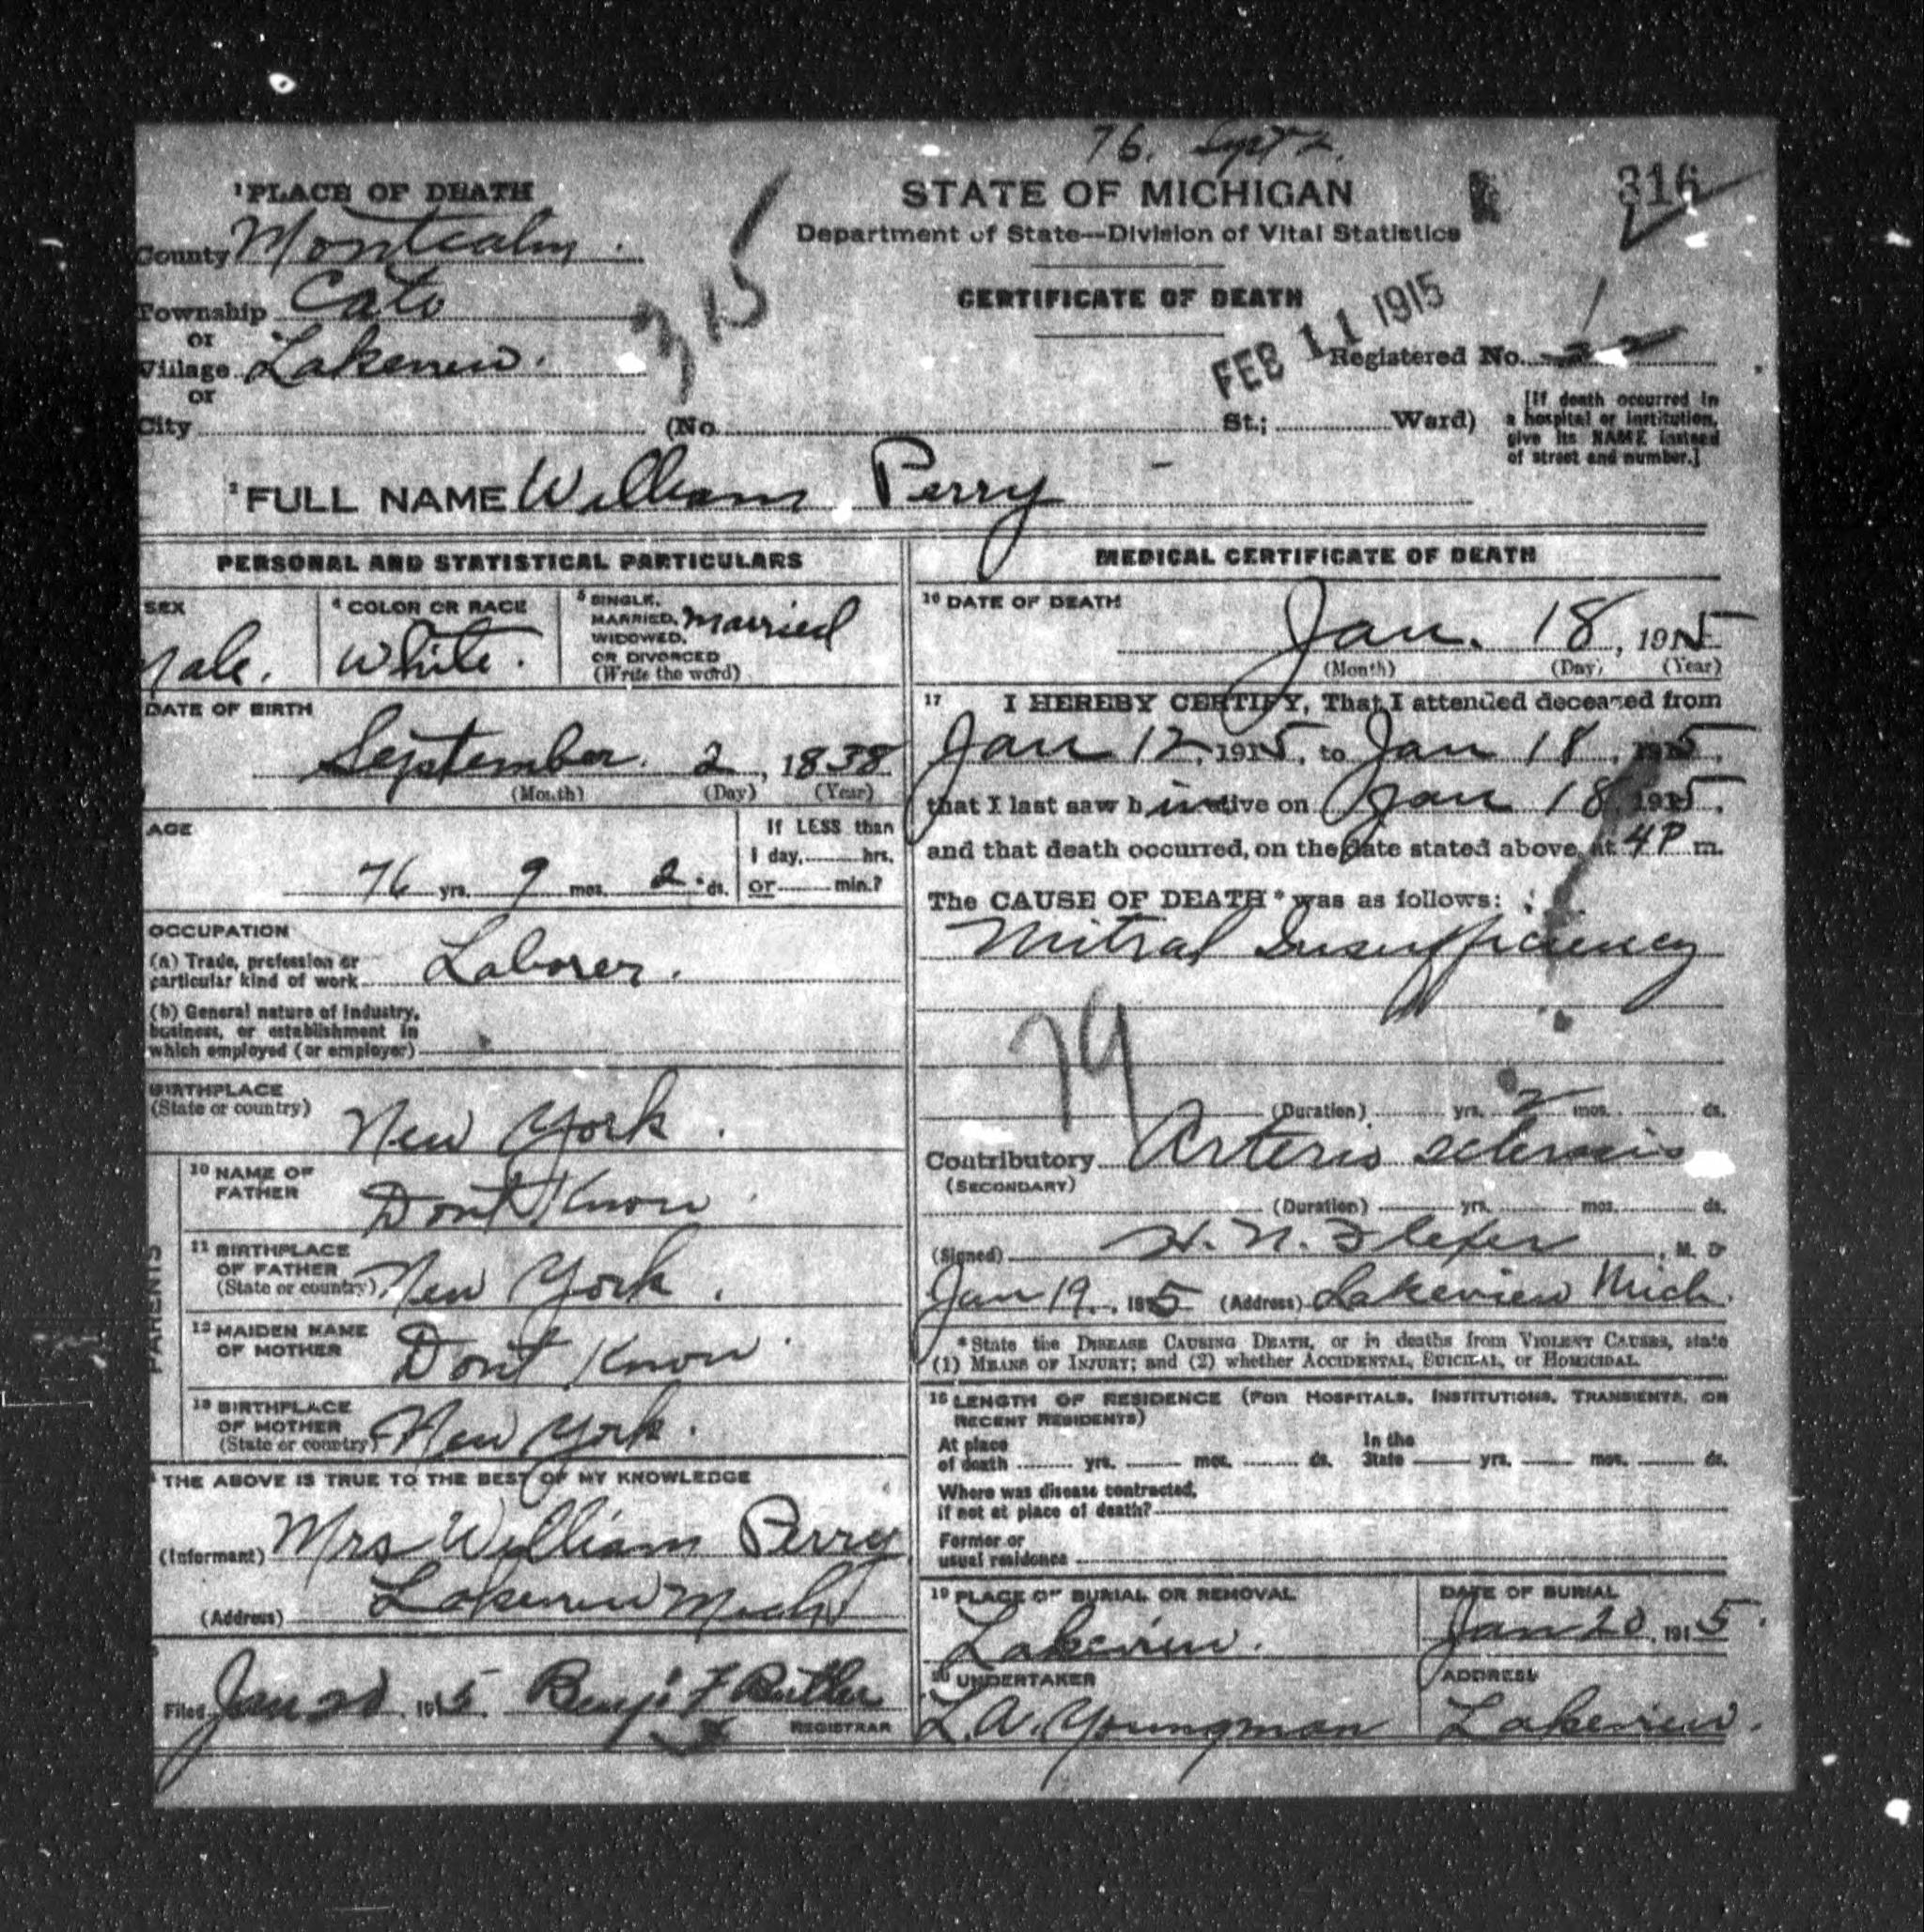 76. Sept 2.
1 PLACE OF DEATH
STATE OF MICHIGAN
316
Department of State—Division of Vital Statistics
County Montcalm.
315
Township Cato
CERTIFICATE OF DEATH
FEB 11 1915
or
Village Lakeview.
Registered No.
or
City (No. St.; Ward)
[If death occurred in
a hospital or institution,
give its NAME instead
of street and number.]
2 FULL NAME William Perry
PERSONAL AND STATISTICAL PARTICULARS
SEX
Male.
4 COLOR OR RACE
White.
5 SINGLE,
MARRIED,
WIDOWED,
OR DIVORCED
(Write the word)
Married
DATE OF BIRTH
September. 2, 1838
(Month) (Day) (Year)
AGE
76 yrs. 9 mos. 2 ds.
If LESS than
1 day, hrs.
or min.?
OCCUPATION
(a) Trade, profession or
particular kind of work Laborer.
(b) General nature of industry,
business, or establishment in
which employed (or employer)
BIRTHPLACE
(State or country)
New York.
PARENTS
10 NAME OF
FATHER
Dont Know
11 BIRTHPLACE
OF FATHER
(State or country) New York.
12 MAIDEN NAME
OF MOTHER
Dont Know
13 BIRTHPLACE
OF MOTHER
(State or country) New York.
THE ABOVE IS TRUE TO THE BEST OF MY KNOWLEDGE
(Informant) Mrs William Perry
(Address) Lakeview Mich
Filed Jan 20 1915 Benj F Butler
REGISTRAR
MEDICAL CERTIFICATE OF DEATH
16 DATE OF DEATH
Jan. 18, 1915
(Month) (Day) (Year)
17 I HEREBY CERTIFY, That I attended deceased from
Jan 12, 1915, to Jan 18, 1915,
that I last saw him alive on Jan 18, 1915,
and that death occurred, on the date stated above, at 4 P m.
The CAUSE OF DEATH* was as follows:
Mitral Insufficiency
79
(Duration) yrs. 2 mos. ds.
Contributory Arterio sclerosis
(SECONDARY)
(Duration) yrs. mos. ds.
(Signed) H. N. , M. D
Jan 19, 1915 (Address) Lakeview Mich.
*State the DISEASE CAUSING DEATH, or in deaths from VIOLENT CAUSES, state
(1) MEANS OF INJURY; and (2) whether ACCIDENTAL, SUICIDAL, or HOMICIDAL.
18 LENGTH OF RESIDENCE (FOR HOSPITALS, INSTITUTIONS, TRANSIENTS, OR
RECENT RESIDENTS)
At place
of death yrs. mos. ds.
In the
State yrs. mos. ds.
Where was disease contracted,
if not at place of death?
Former or
usual residence
19 PLACE OF BURIAL OR REMOVAL
Lakeview.
DATE OF BURIAL
Jan 20, 1915.
20 UNDERTAKER
L. A. Youngman
ADDRESS
Lakeview.